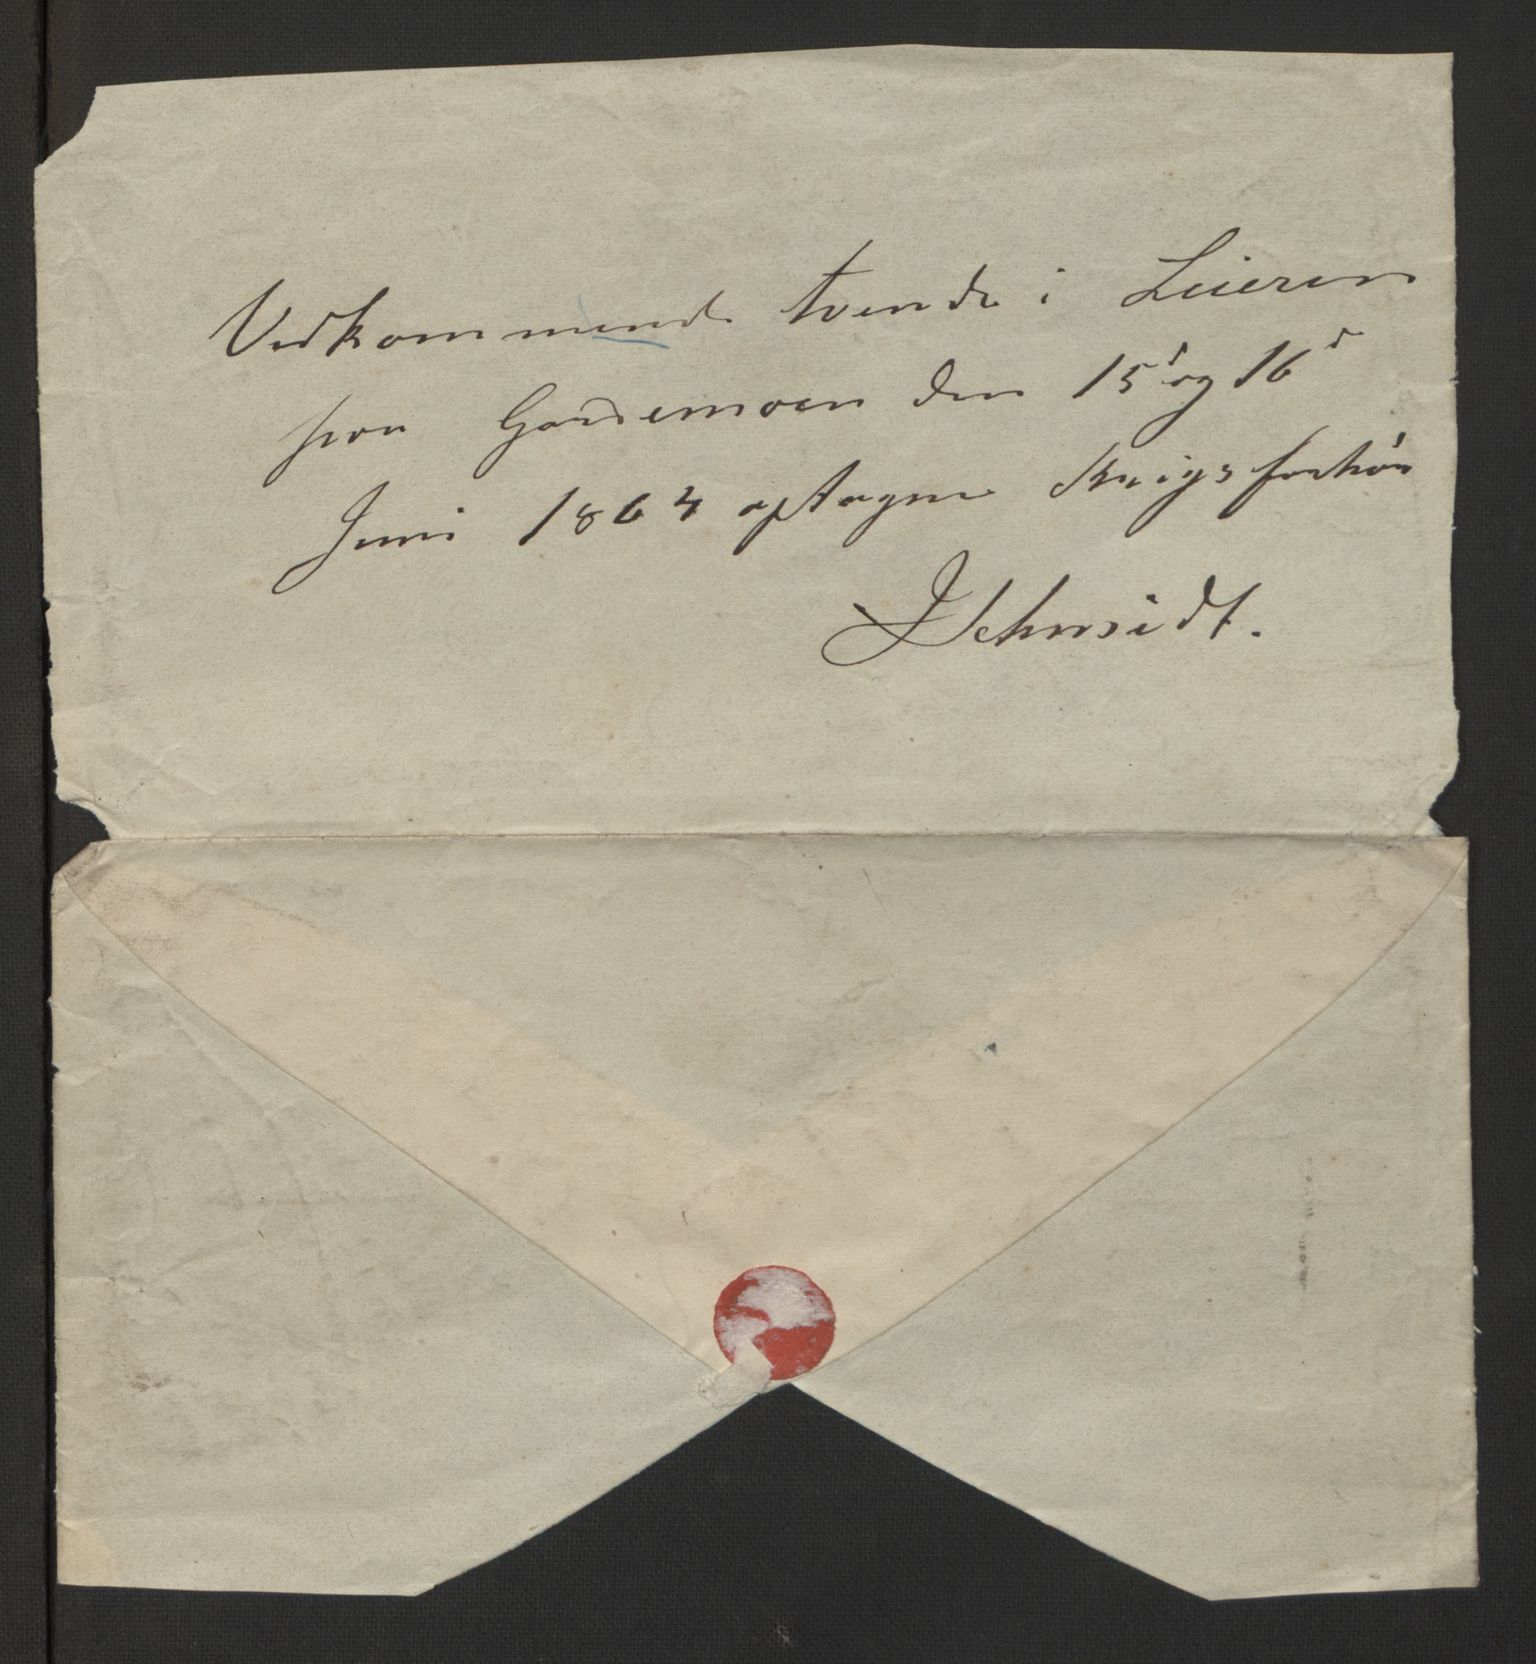 Vedkommende tvende i Leieren
paa Gardemoen den 15d og 16d
Juni 1864 optagne Krigsforhør
JSchmidt.